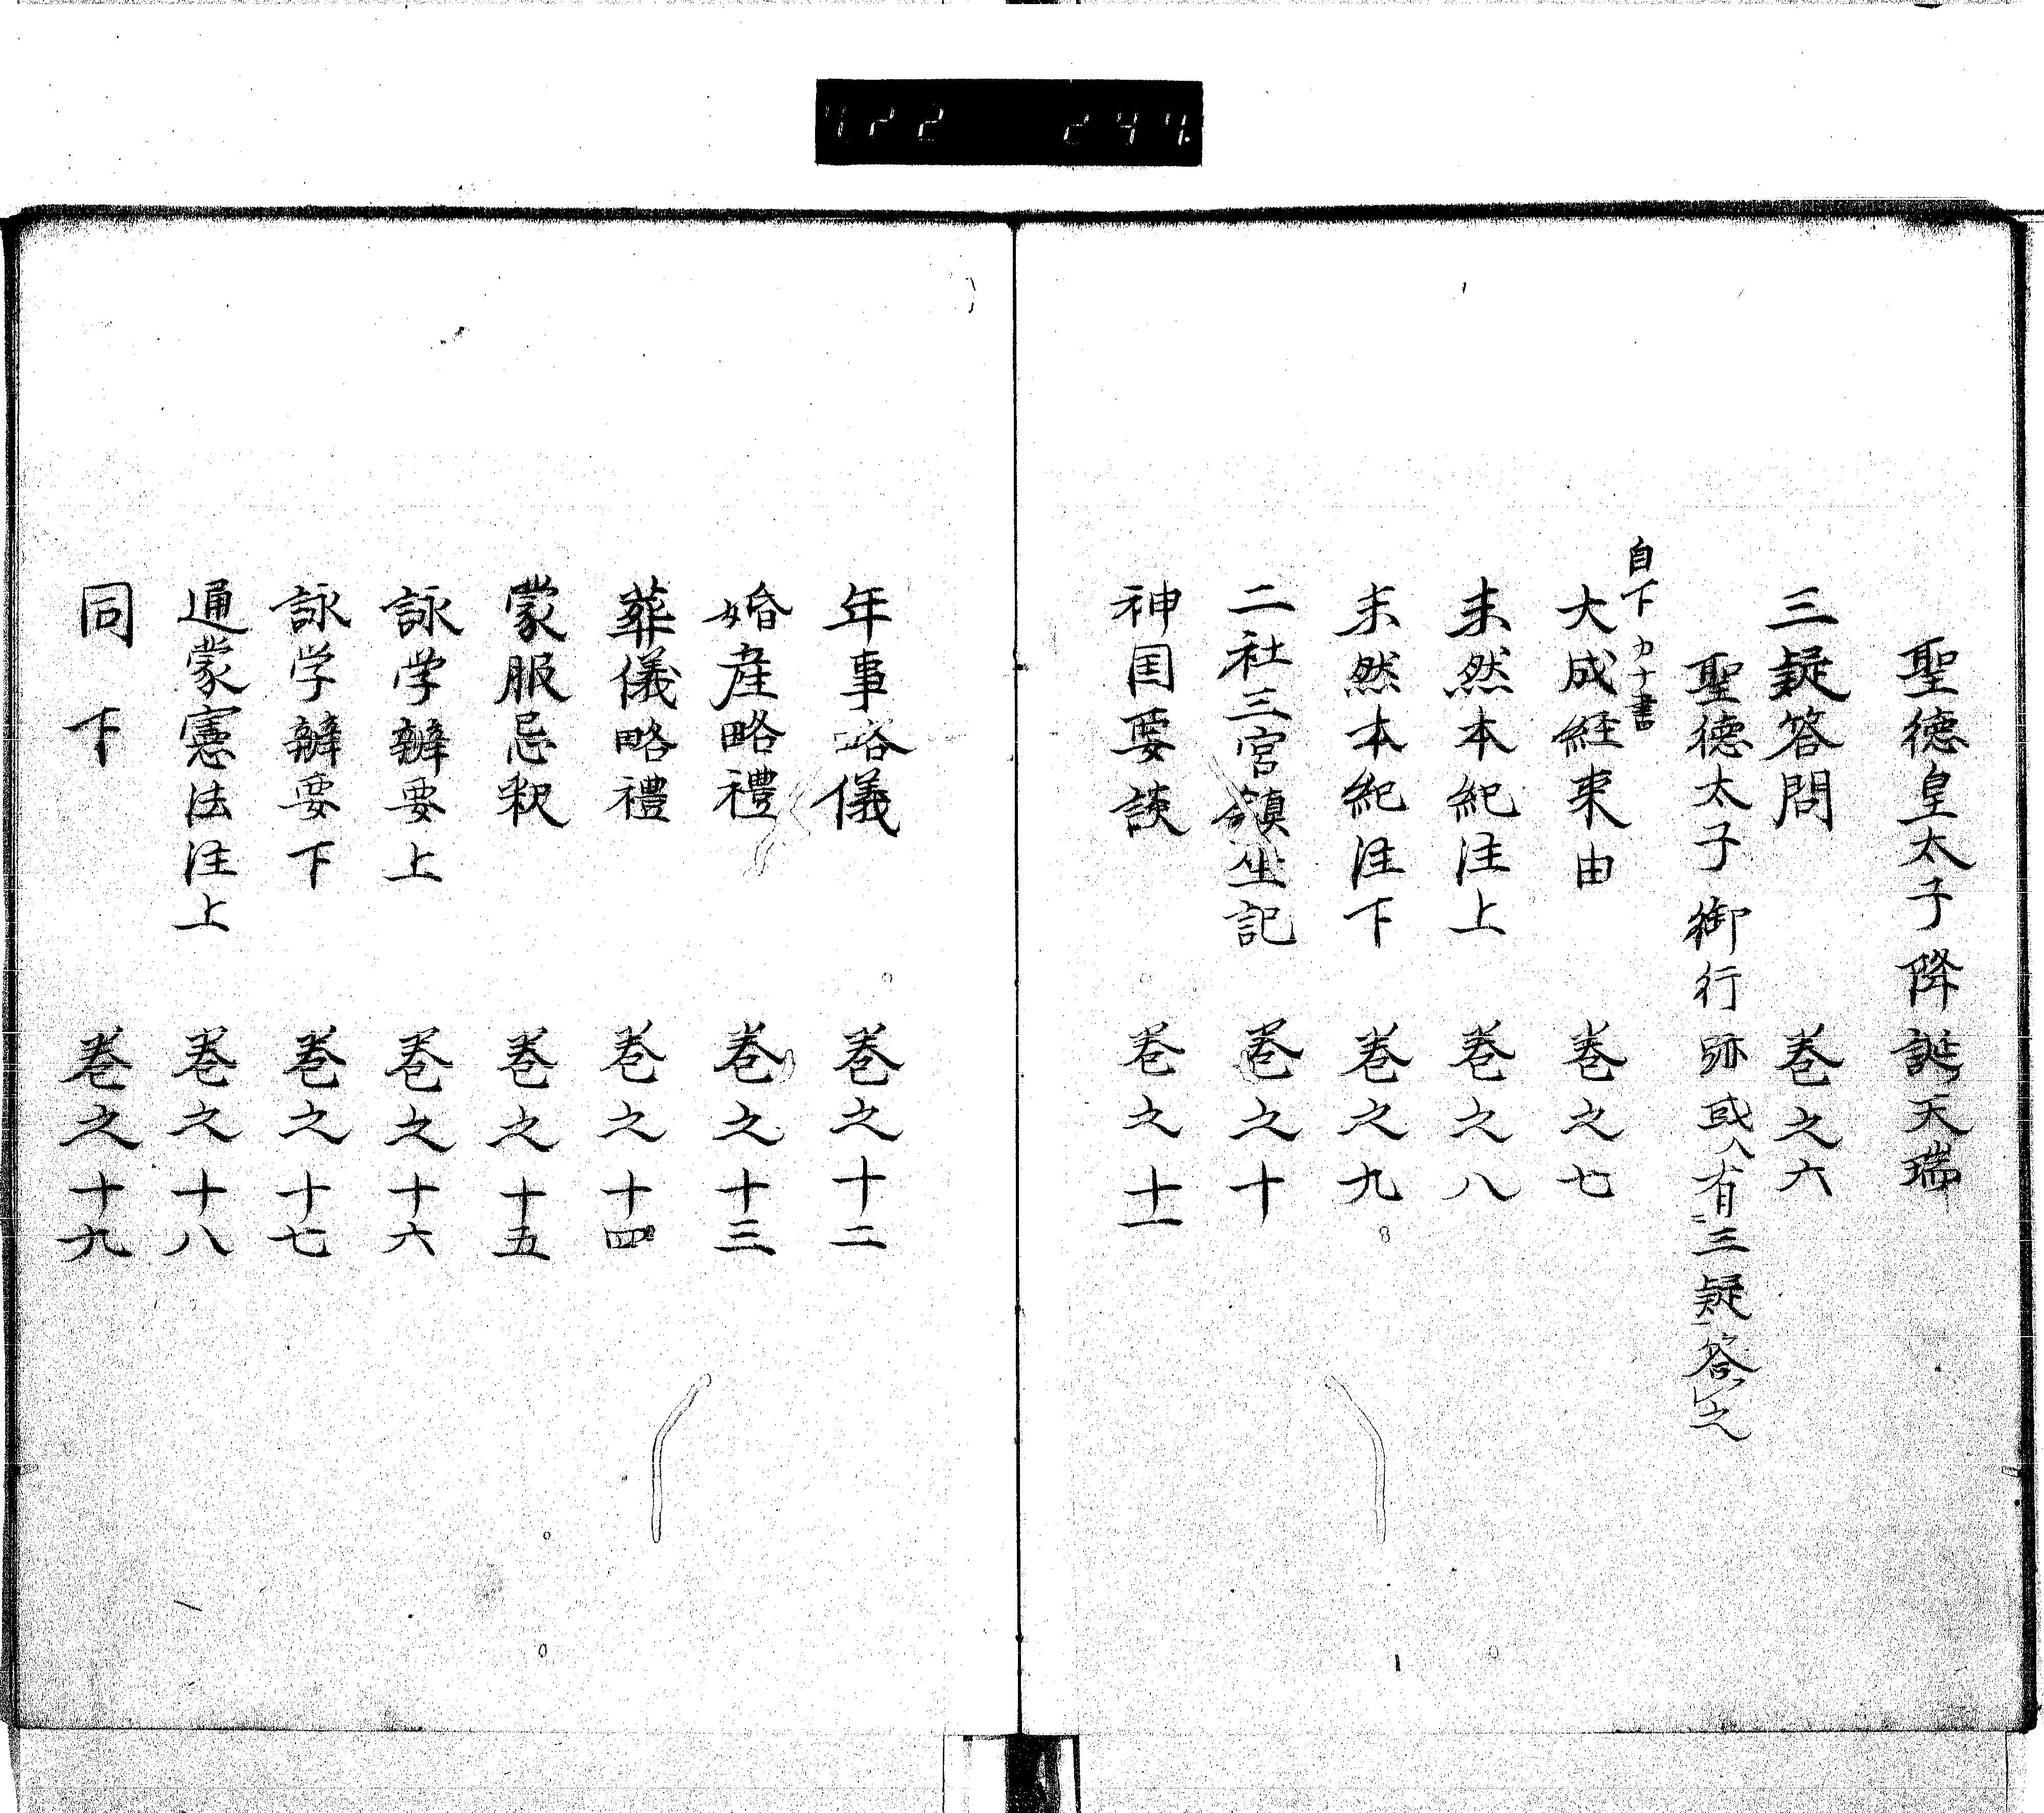 422 244
聖徳皇太子降誕天瑞
三疑答問 巻之六
聖徳太子御行跡或人有三疑答之
自下カナ書
大成経来由 巻之七
未然本紀注上 巻之八
未然本紀注下 巻之九
二社三宮鎮坐記 巻之十
神国要談 巻之十一
年事略儀 巻之十二
婚産略禮 巻之十三
葬儀略禮 巻之十四
蒙服忌釈 巻之十五
詠学辨要上 巻之十六
詠学辨要下 巻之十七
通蒙憲法注上 巻之十八
同 下 巻之十九